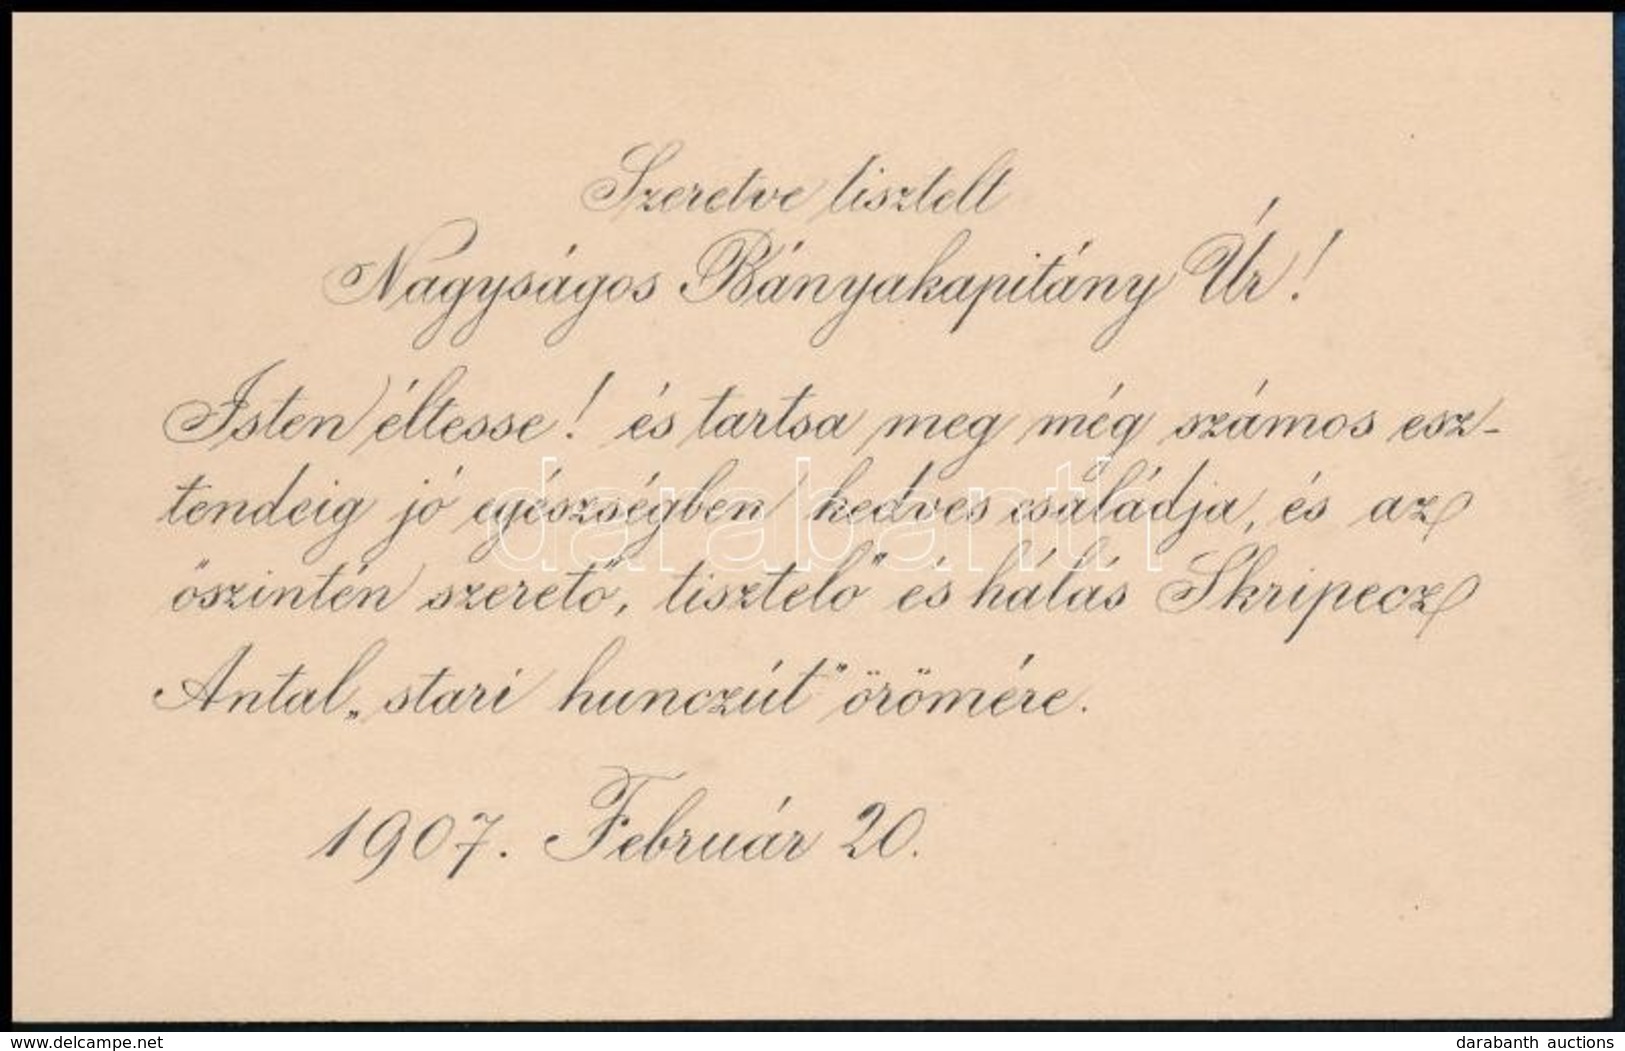 Szeretve tisztelt
Nagyságos Bányakapitány Úr!
Isten éltesse! és tartsa meg még számos esz-
tendeig jó egészségben kedves családja, és az
őszintén szerető, tisztelő és hálás Skripecz
Antal „stari hunczút" örömére.
1907. Február 20.
darabanth
www.delcampe.net
darabanth auctions